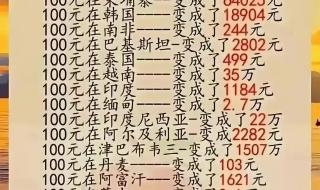 100元在柬埔寨——变成了64025元
100元在韩国——变成了18904元
100元在南非——变成了244元
100元在巴基斯坦-变成了2802元
100元在泰国——变成了499元
100元在越南——变成了35万
100元在印度——变成了1184元
100元在缅甸——变成了2.7万
100元在印度尼西亚-变成了22万
100元在阿尔及利亚-变成了2282元
100元在津巴布韦三-变成了1507万
100元在丹麦——变成了103元
100元在阿富汗-变成了1621元